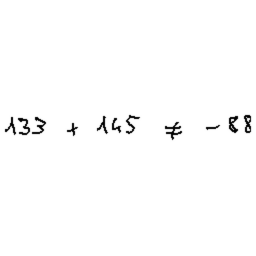 133 + 145 ≠ -88